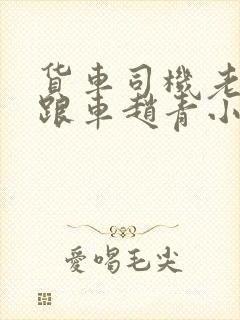 貨車司機老
跟車趙青小
愛唱毛尖